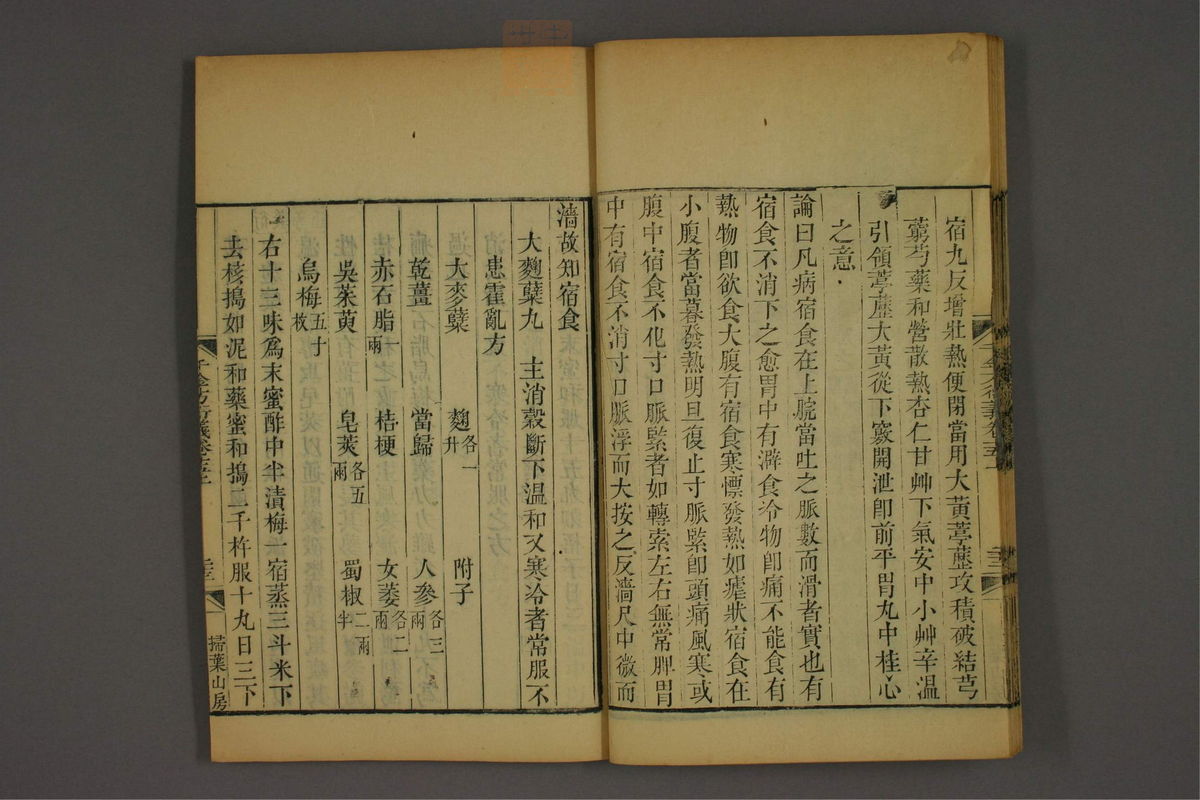 宿九反增壯熱便閉當用大黃葶藶攻積破結芎
藭芍藥和營散熱杏仁甘艸下氣安中小艸辛溫
引領葶藶大黃從下竅開泄卽前平胃丸中桂心
之意
論曰凡病宿食在上脘當吐之脈數而滑者實也有
宿食不消下之愈胃中有澼食冷物卽痛不能食有
熱物卽欲食大腹有宿食寒慄發熱如瘧狀宿食在
小腹者當暮發熱明旦復止寸脈緊卽頭痛風寒或
腹中宿食不化寸口脈緊者如轉索左右無常脾胃
中有宿食不消寸口脈浮而大按之反濇尺中微而
濇故知宿食
大麴蘖丸 主消穀斷下溫和又寒冷者常服不
患霍亂方
大麥蘖 麴各一升 附子
乾薑 當歸 人參各三兩
赤石脂一兩 桔梗 女萎各二兩
吳茱萸 皂莢各五兩 蜀椒二兩半
烏梅五十枚
右十三味爲末蜜酢中半漬梅一宿蒸三斗米下
去核搗如泥和藥蜜和搗二千杵服十丸日三下
千金方衍義卷十五
掃葉山房